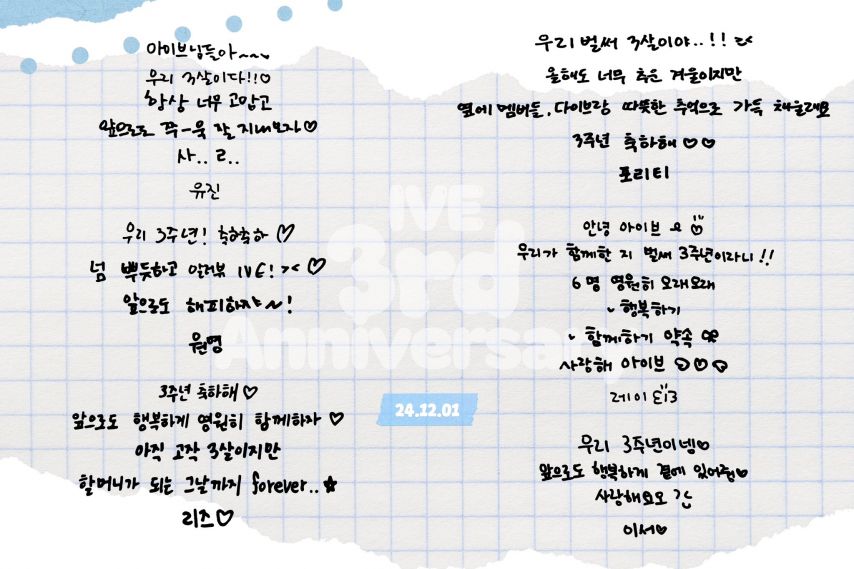 아이브님들아~~~♡
우리 3살이다!!♡
항상 너무 고맙고
앞으로도 쭈-욱 잘 지내보자♡
사.. ㄹ..
유진
우리 3주년! 축하축하 ♡
넘 뿌듯하고 알러뷰 IVE! >< ♡
앞으로도 해피하쟈~!
원영
3주년 축하해 ♡
앞으로도 행복하게 영원히 함께하자 ♡
아직 고작 3살이지만
할머니가 되는 그날까지 forever..★
리즈♡
우리 벌써 3살이야..!! ><
올해도 너무 추운 겨울이지만
옆에 멤버들, 다이브랑 따뜻한 추억으로 가득 채울래요
3주년 축하해 ♡♡
포리티
안녕 아이브
우리가 함께한 지 벌써 3주년이라니!!
6명 영원히 오래오래
- 행복하기
- 함께하기 약속
사랑해 아이브 ♡♡♡
레이
우리 3주년이넹♡
앞으로도 행복하게 곁에 있어줘♡
사랑해요오
이서♡
IVE
3rd
Anniversary
24.12.01